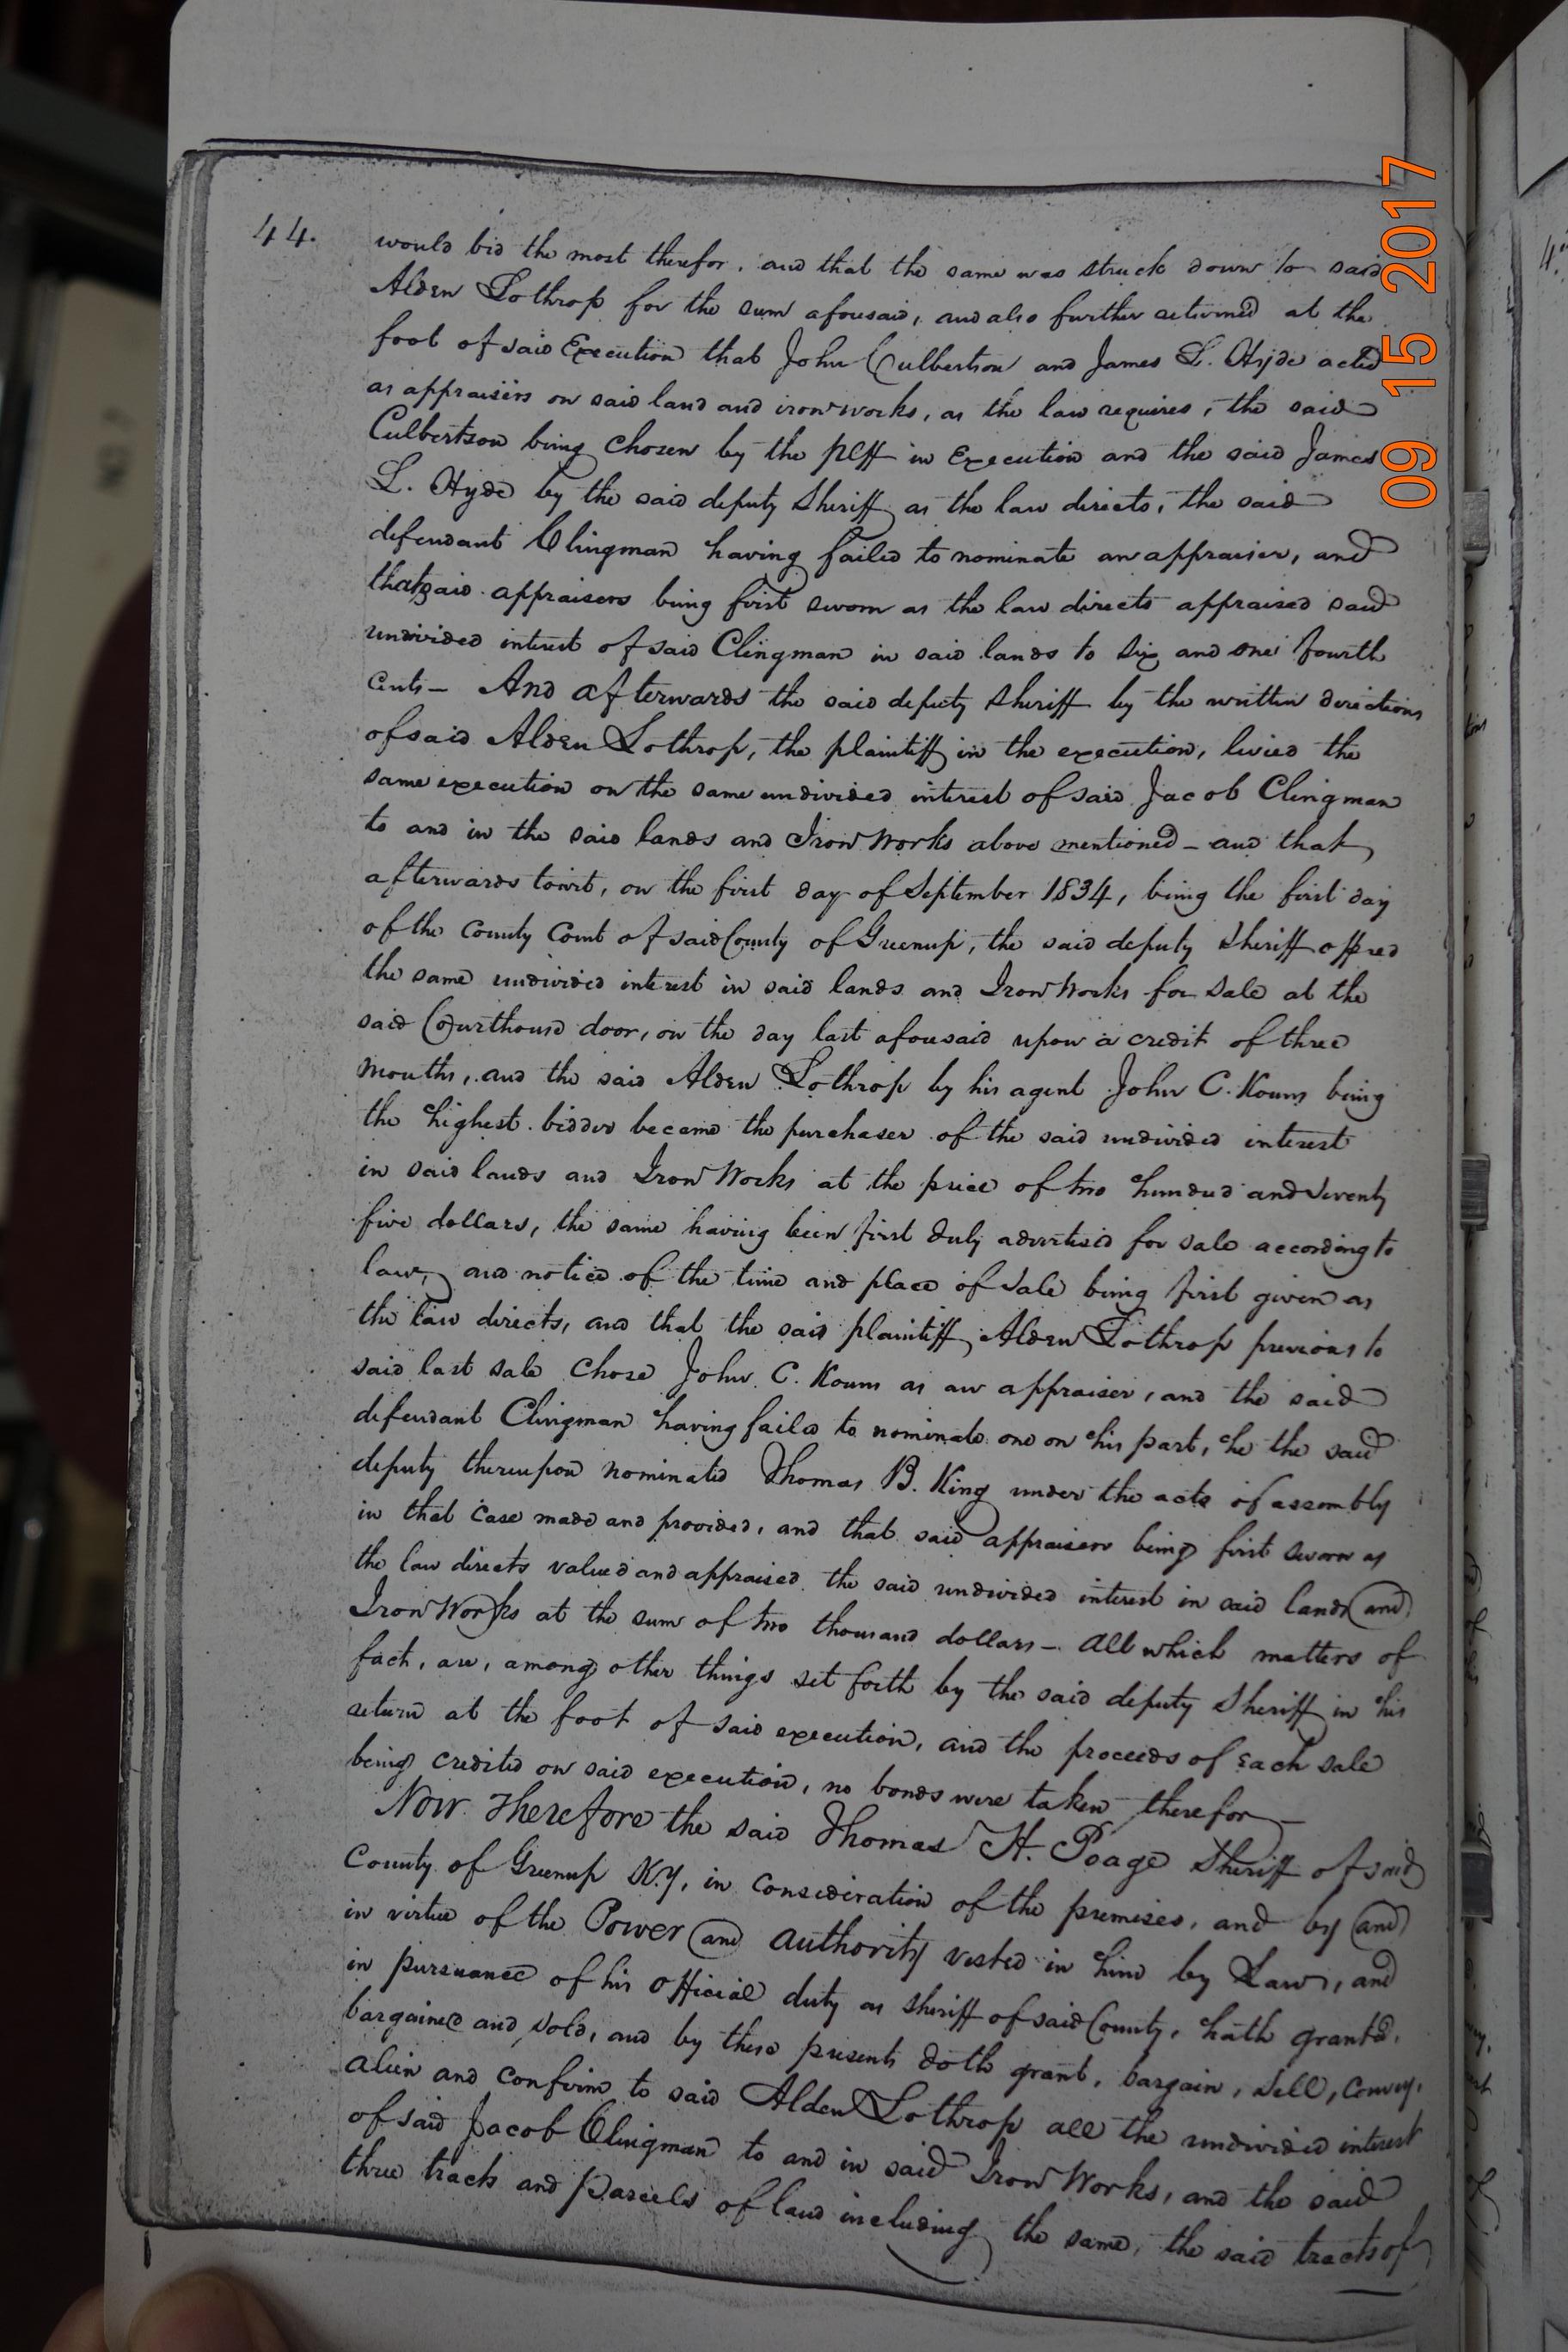 44.
would bid the most therefor, and that the same was struck down to said
Alden Lothrop for the sum aforesaid, and also further returned at the
foot of said Execution that John Culbertson and James L. Hyde acted
as appraisers on said land and iron works, as the law requires, the said
Culbertson being chosen by the plff in Execution and the said James
L. Hyde by the said deputy Sheriff as the law directs, the said
defendant Clingman having failed to nominate an appraiser, and
that said appraisers being first sworn as the law directs appraised said
undivided interest of said Clingman in said lands to Six and one fourth
cents — And afterwards the said deputy Sheriff by the written directions
of said Alden Lothrop, the plaintiff in the execution, levied the
same execution on the same undivided interest of said Jacob Clingman
to and in the said lands and Iron Works above mentioned — and that
afterwards towit, on the first day of September 1834, being the first day
of the County Court of said County of Greenup, the said deputy Sheriff offred
the same undivided interest in said lands and Iron Works for sale at the
said Courthouse door, on the day last aforesaid upon a credit of three
months, and the said Alden Lothrop by his agent John C. Kouns being
the highest bidder became the purchaser of the said undivided interest
in said lands and Iron Works at the price of two hundred and seventy
five dollars, the same having been first duly advertised for sale according to
law, and notice of the time and place of sale being first given as
the law directs, and that the said plaintiff, Alden Lothrop previous to
said last sale chose John C. Kouns as an appraiser, and the said
defendant Clingman having failed to nominate one on his part, he the said
deputy thereupon nominated Thomas B. King under the acts of assembly
in that case made and provided, and that said appraisers being first sworn as
the law directs valued and appraised the said undivided interest in said lands and
Iron Works at the sum of two thousand dollars — All which matters of
fact, are, among other things set forth by the said deputy Sheriff in his
return at the foot of said execution, and the proceeds of each sale
being credited on said execution, no bonds were taken therefor —
Now Therefore the said Thomas H. Poage Sheriff of said
County of Greenup Ky, in consideration of the premises, and by and
in virtue of the Power and authority vested in him by Law, and
in pursuance of his official duty as Sheriff of said County, hath granted,
bargained and sold, and by these presents doth grant, bargain, sell, convey,
alien and confirm to said Alden Lothrop all the undivided interest
of said Jacob Clingman to and in said Iron Works, and the said
three tracts and parcels of land including the same, the said tracts of
09 15 2017